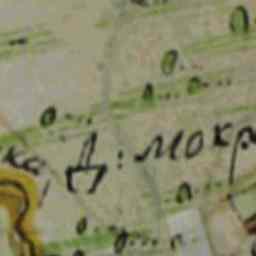 ка, Д: мокр